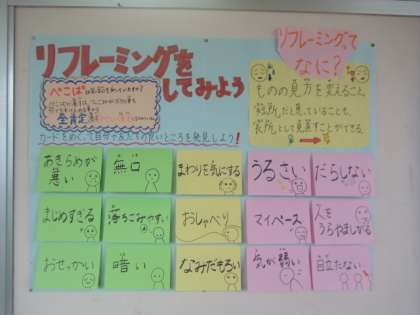 リフレーミングを
してみよう
リフレーミングって
なに?
ものの見方を変えること。
"短所"だと思っていることも、
"長所"として見直すことができる。
ぺこぱ
全肯定
カードをめくって自分や友だちの良いところを発見しよう!
あきらめが
悪い
無口
まわりを気にする
うるさい
だらしない
まじめすぎる
落ちこみやすい
おしゃべり
マイペース
人を
うらやましがる
おせっかい
暗い
なみだもろい
気が弱い
目立たない